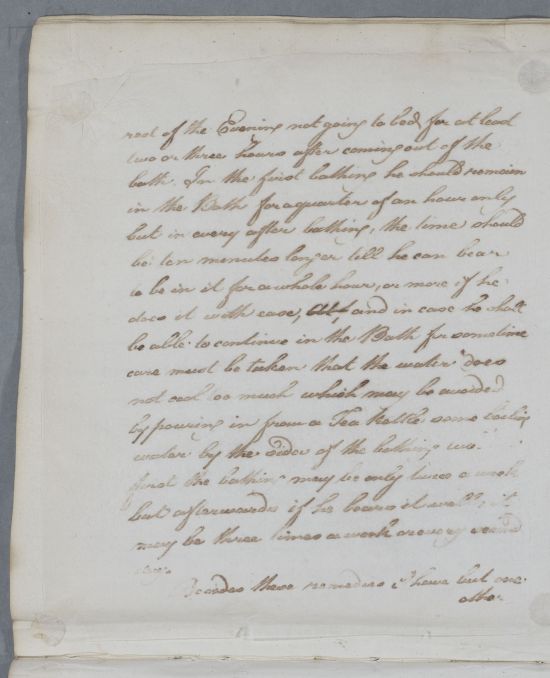 rest of the Evening not going to bed for at least
two or three hours after coming out of the
bath. In the first bathing he should remain
in the Bath for a quarter of an hour only
but in every after bathing, the time should
be ten menutes longer till he can bear
to be in it for a whole hour, or more if he
does it with ease, and in case he shall
be able to continue in the Bath for sometime
care must be taken that the water does
not cool too much which may be avoided
by pouring in from a Tea Kettle some boiling
water by the sides of the bathing
first the bathing may be only twice a week
but afterwards if he bears it well, it
may be three times a week or every second
day.
Besides these remedies I have but one
other